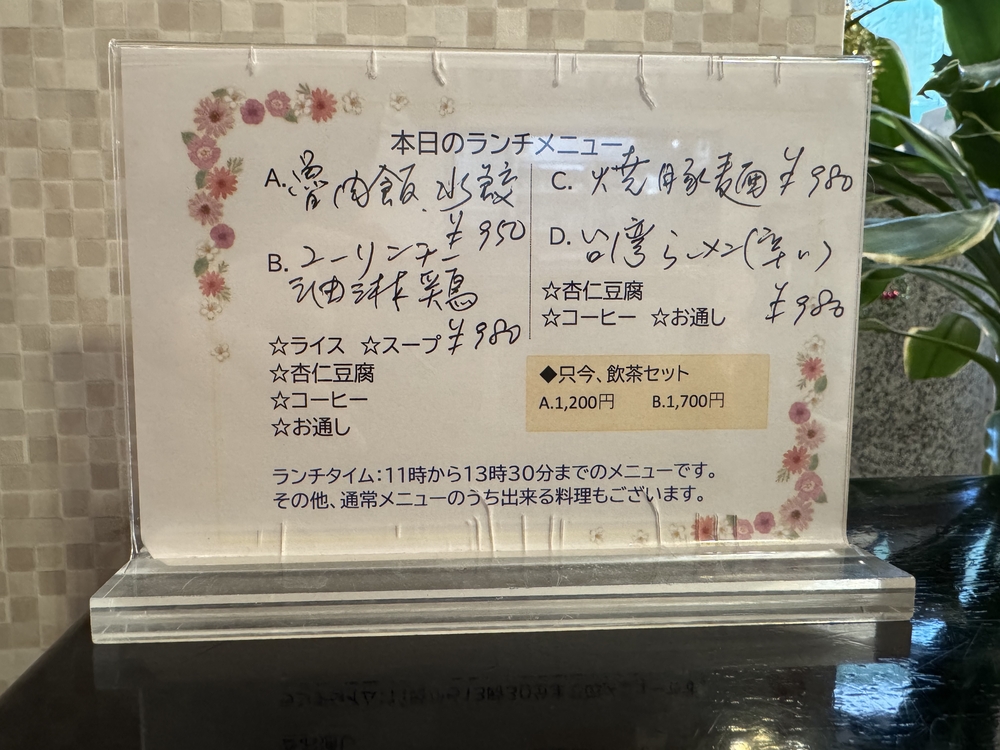 本日のランチメニュー
A. 魯肉飯、水餃
¥950
B. ユーリンチー
油淋鶏
¥980
☆ライス ☆スープ
☆杏仁豆腐
☆コーヒー
☆お通し
C. 焼豚麺 ¥980
D. 台湾らーメン(辛い)
¥980
☆杏仁豆腐
☆コーヒー ☆お通し
◆只今、飲茶セット
A.1,200円 B.1,700円
ランチタイム:11時から13時30分までのメニューです。
その他、通常メニューのうち出来る料理もございます。